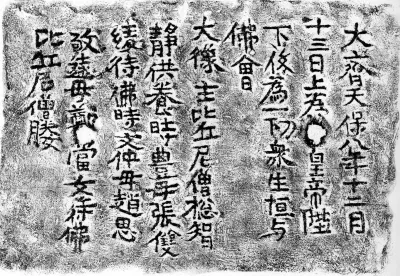 大齊天保八年十二月
十三日上為皇帝陛
下後為一切衆生恒与
佛會
大像主比丘尼僧惣智
静供養時豊母張雙
綾侍佛時文仲母趙思
敬遠母鄭當女侍佛
比丘尼僧